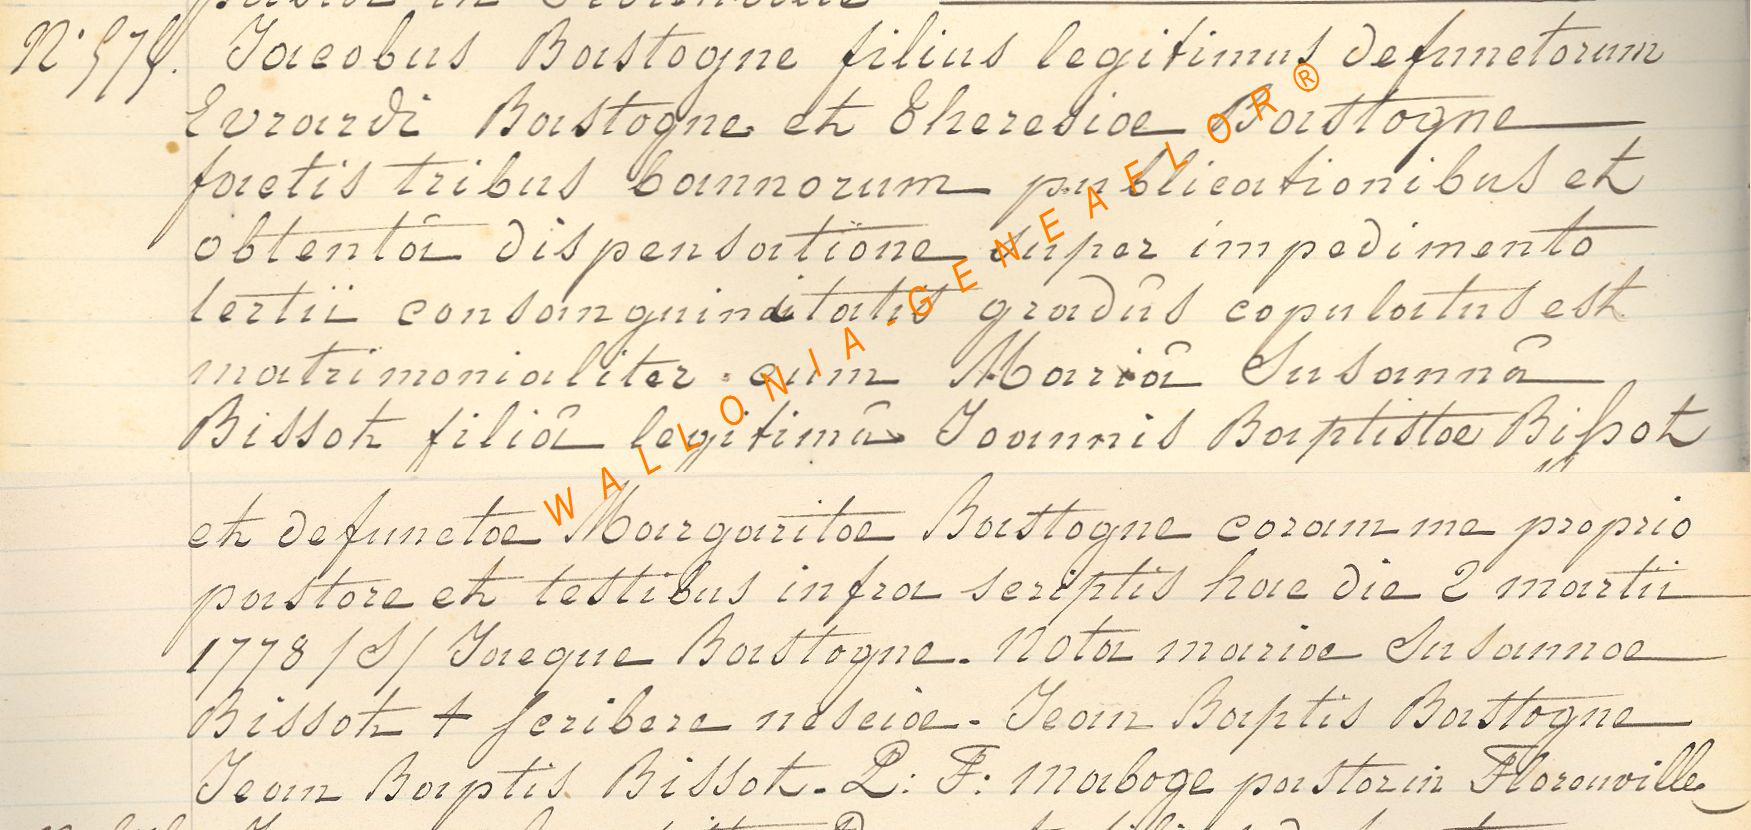 Nº 574. Jacobus Bastogne filius legitimus defunctorum
Evrardi Bastogne et Theresiae Bastogne
factis tribus bannorum publicationibus et
obtentâ dispensatione super impedimento
tertii consanguinitatis gradûs copulatus est
matrimonialiter cum Mariâ Susannâ
Bissot filiâ legitimâ Joannis Baptistae Bissot
et defunctae Margaritae Bastogne coram me proprio
pastore et testibus infra scriptis hac die 2 martii
1778 /S/ Jacque Bastogne. Nota mariae Susannae
Bissot + scribere nesciae. Jean Baptis Bastogne
Jean Baptis Bissot. P: F: Maboge pastor in Florenville
WALLONIA-GENEAELOR®